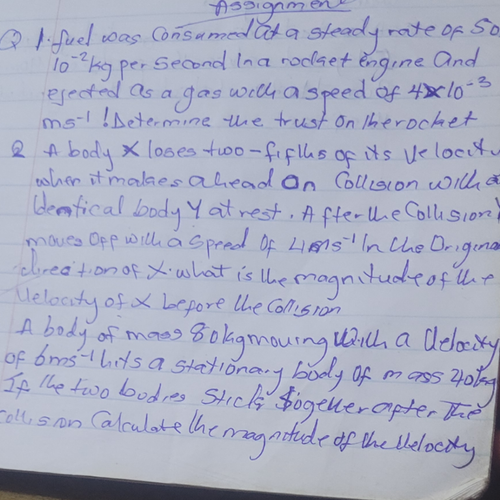 Assignment
Q 1. fuel was Consumed at a steady rate of 5.0
10⁻² kg per second In a rocket engine and
ejected as a gas with a speed of 4×10⁻³
ms⁻¹ ! Determine the trust on the rocket
2 A body X loses two-fifths of its Velocity
when it makes a head on Collision with a
Identical body Y at rest. After the Collision Y
moves off with a speed of 4ms⁻¹ In the Origina
direction of X. what is the magnitude of the
Velocity of X before the Collision
A body of mass 80kg moving with a Velocity
of 6ms⁻¹ hits a stationary body of mass 40kg
If the two bodies Sticks together after The
Collision Calculate the magnitude of the Velocity